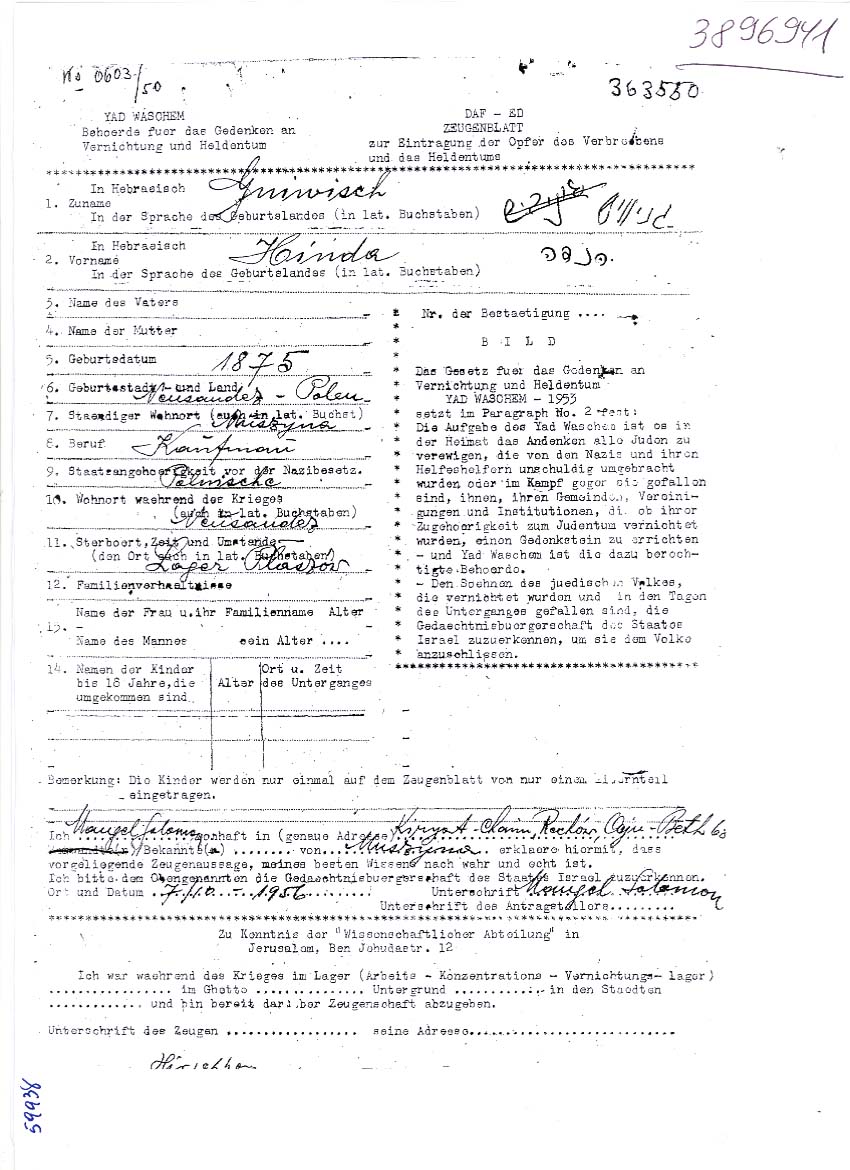 3896941
No 0603/50
363550
YAD WASCHEM
Behoerde fuer das Gedenken an
Vernichtung und Heldentum
DAF - ED
ZEUGENBLATT
zur Eintragung der Opfer des Verbrechens
und das Heldentums
In Hebraeisch
1. Zuname
In der Sprache des Geburtslandes (in lat. Buchstaben)
Gniwisch
גניוויש
In Hebraeisch
2. Vorname
In der Sprache des Geburtslandes (in lat. Buchstaben)
Hinda
הנדה.
3. Name des Vaters
4. Name der Mutter
5. Geburtsdatum 1875
6. Geburtsstadt und Land
Neusandez - Polen
7. Staendiger Wohnort (auch in lat. Buchst)
Muszyna
8. Beruf Kaufman
9. Staatsangehoerigkeit vor der Nazibesetz.
Polnische
10. Wohnort waehrend des Krieges
(auch in lat. Buchstaben)
Neusandez
11. Sterbeort, Zeit und Umstande
(den Ort auch in lat. Buchstaben)
Lager Plaszow
12. Familienverhaeltnisse
Name der Frau u.ihr Familienname Alter
13. -
Name des Mannes sein Alter ....
14. Namen der Kinder
bis 18 Jahre,die
umgekommen sind
Alter
Ort u. Zeit
des Unterganges
Nr. der Bestaetigung ....
B I L D
Das Gesetz fuer das Gedenken an
Vernichtung und Heldentum
YAD WASCHEM - 1953
setzt im Paragraph No. 2 fest:
Die Aufgabe des Yad Waschem ist es in
der Heimat das Andenken alle Juden zu
verewigen, die von den Nazis und ihren
Helfeshelfern unschuldig umgebracht
wurden oder im Kampf gegen sie gefallen
sind, ihnen, ihren Gemeinden, Vereini-
gungen und Institutionen, die ob ihrer
Zugehoerigkeit zum Judentum vernichtet
wurden, einen Gedenkstein zu errichten
- und Yad Waschem ist die dazu berech-
tigte Behoerde.
- Den Soehnen des juedischen Volkes,
die vernichtet wurden und in den Tagen
des Unterganges gefallen sind, die
Gedaechtnisbuergerschaft des Staates
Israel zuzuerkennen, um sie dem Volke
anzuschliessen.
Bemerkung: Die Kinder werden nur einmal auf dem Zeugenblatt von nur einem Elternteil
eingetragen.
Ich Mangel Salomon wohnhaft in (genaue Adresse) Kiryat-Chaim, Rechow, Beth 68
Bekannte(r) ........ von Muszyna erklaere hiermit, dass
vorgeliegende Zeugenaussage, meines besten Wissens nach wahr und echt ist.
Ich bitte dem Obengenannten die Gedaechtnisbuergerschaft des Staates Israel zuzuerkennen.
Ort und Datum 7/10 - 1956 Unterschrift Mangel Salomon
Unterschrift des Antragstellers.........
Zu Kenntnis der "Wissenschaftlicher Abteilung" in
Jerusalem, Ben Jehudastr. 12
Ich war waehrend des Krieges im Lager (Arbeits - Konzentrations - Vernichtungs- lager)
................. im Ghetto ............... Untergrund ............ in den Staedten
............. und bin bereit darueber Zeugenschaft abzugeben.
Unterschrift des Zeugen .................. seine Adresse............................
59938